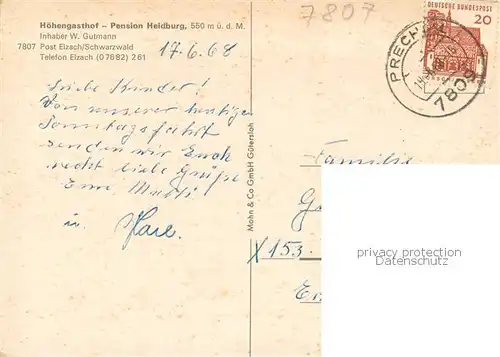 Höhengasthof – Pension Heidburg, 550 m ü. d. M.
Inhaber W. Gutmann
7807 Post Elzach/Schwarzwald
Telefon Elzach (0 76 82) 2 61
7807
17.6.68
DEUTSCHE BUNDESPOST
20
PRECH
7809
Liebe Kinder!
Von unserer heutigen
Sonntagsfahrt
senden wir Euch
recht liebe Grüße
Eure Mutti
u.
Mohn & Co GmbH Gütersloh
Familie
X 153
privacy protection
Datenschutz